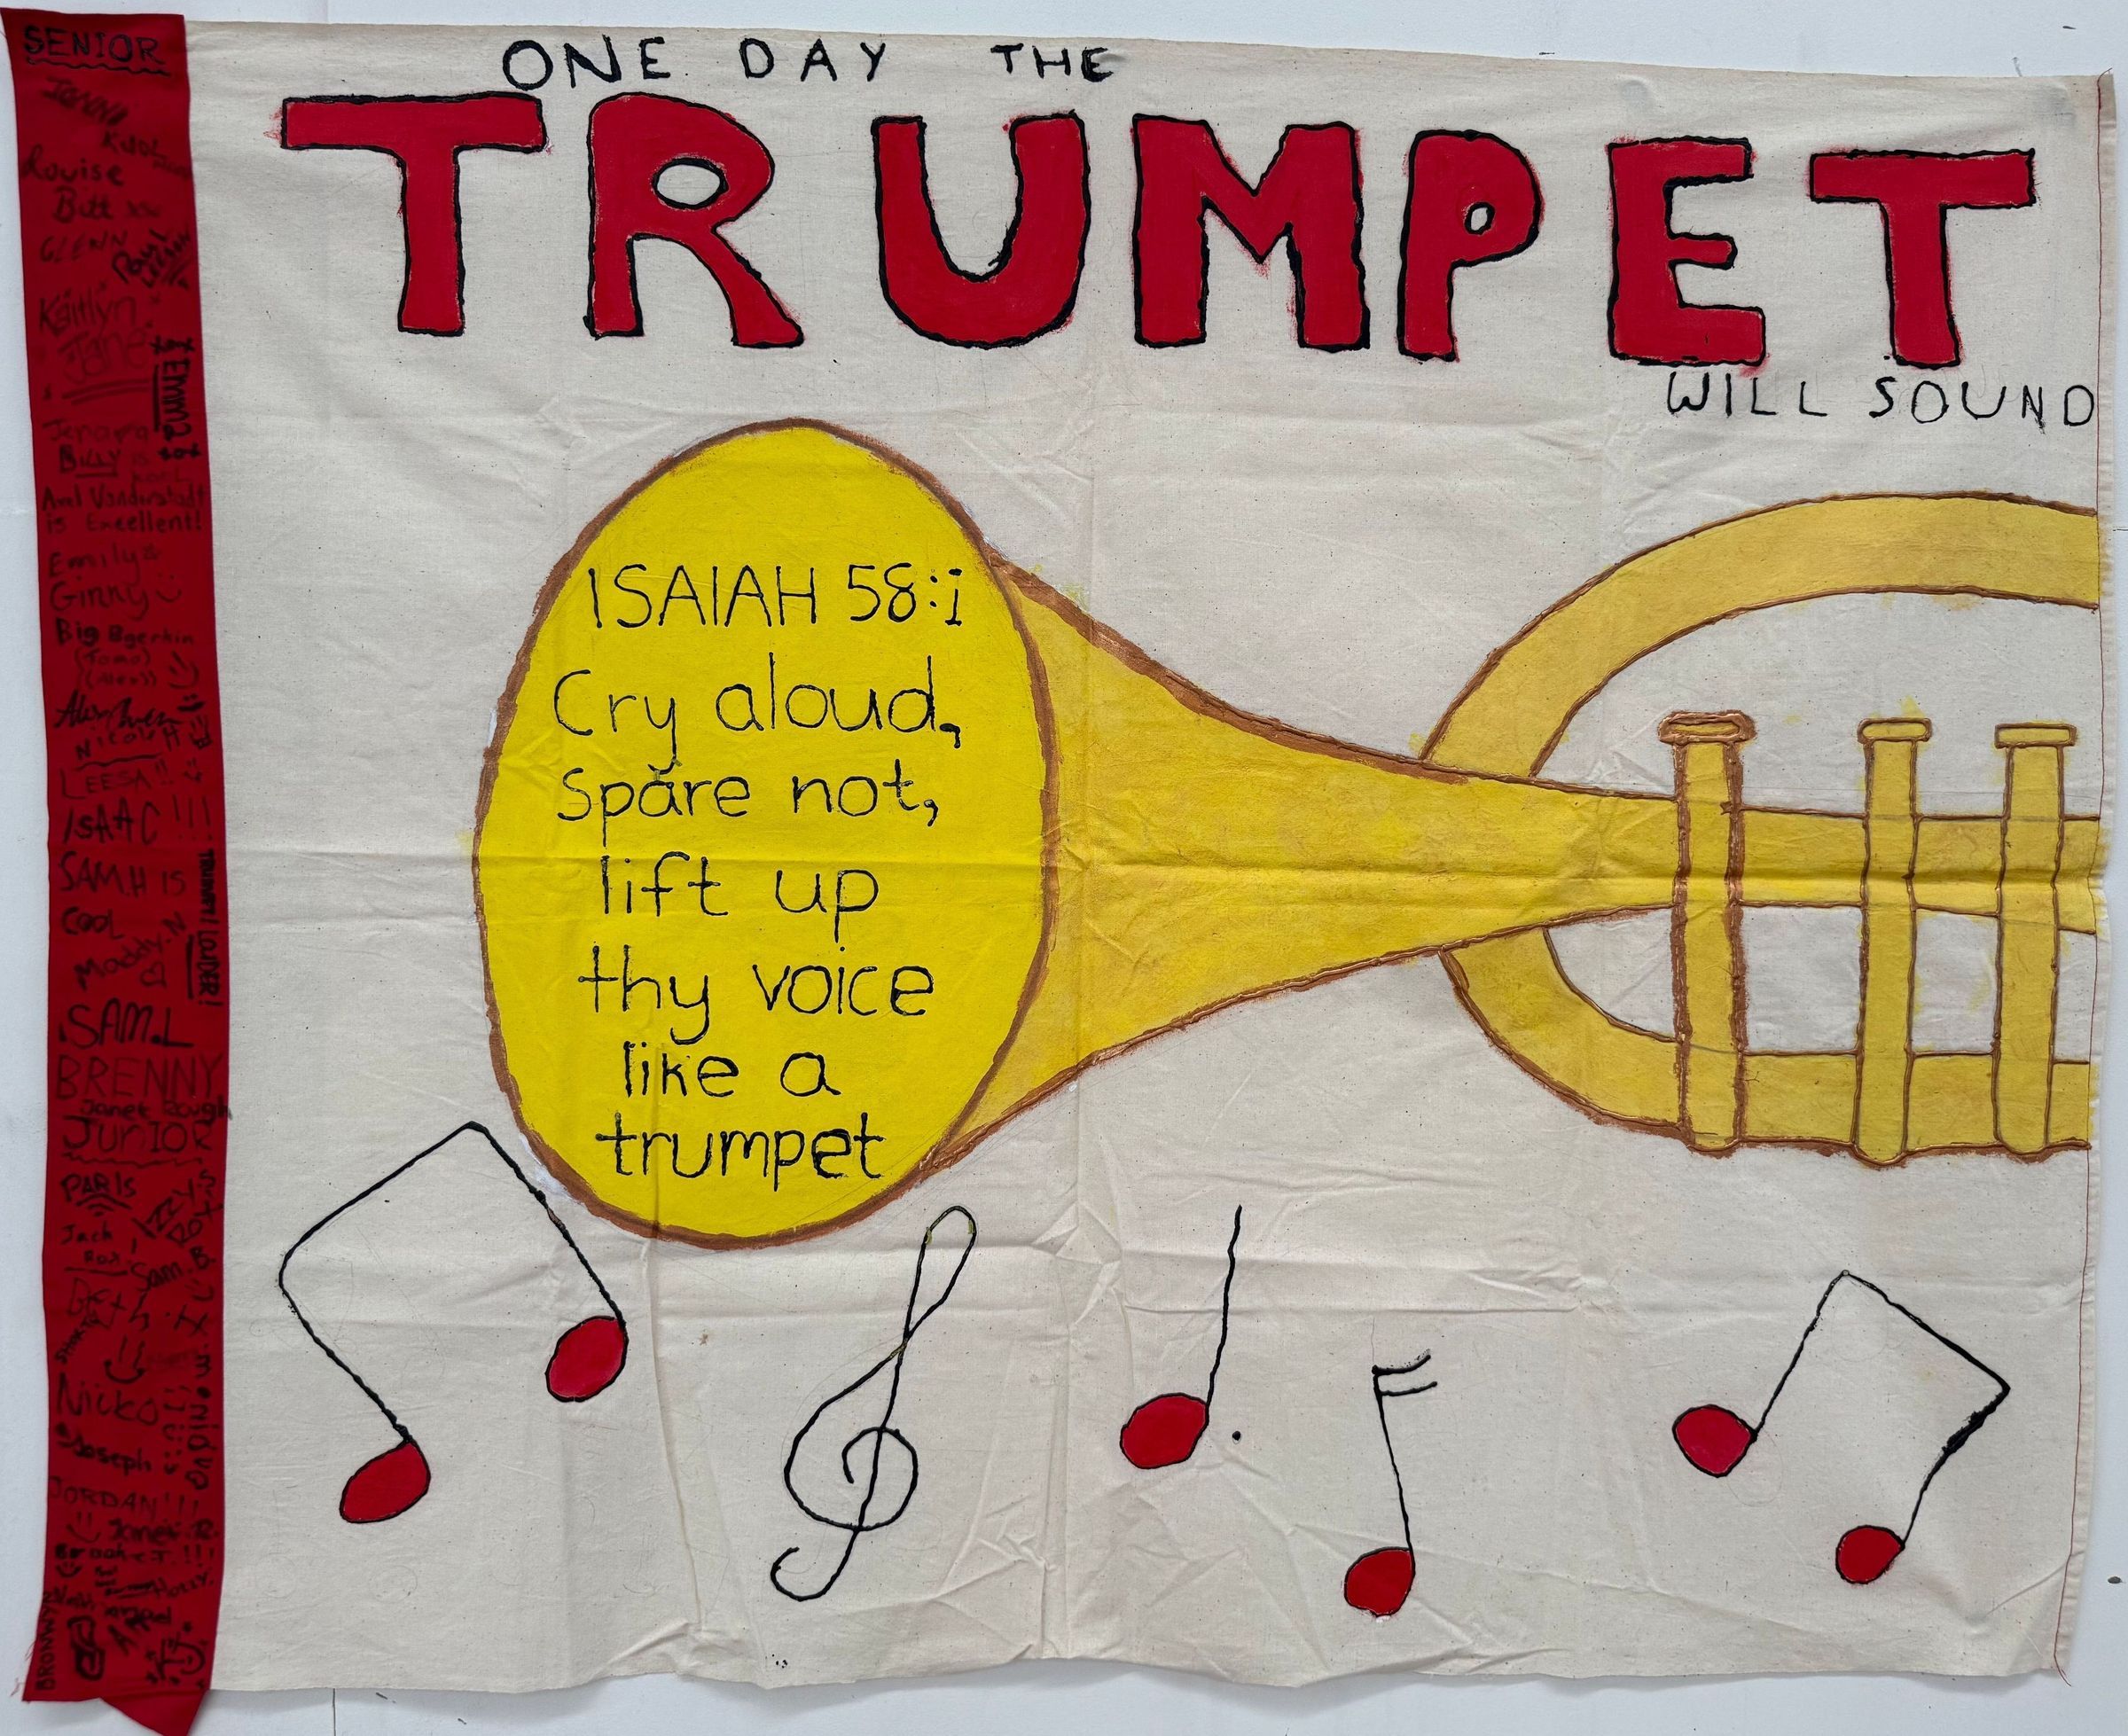 ONE DAY THE
TRUMPET
WILL SOUND
ISAIAH 58:1
Cry aloud,
Spare not,
lift up
thy voice
like a
trumpet
SENIOR
Louise
Britt
GLENN
Paul
Kaitlyn
Jane
Emma
BILLY is
Axel Vanderstadt
is Excellent!
Emily &
Ginny
Big
LEESA!!
ISAAC!!!
SAM.H IS
COOL
Maddy.N
TRUMPY! LOUDER!
SAM.L
BRENNY
Janet Rough
JUNIOR
PARIS
Jack
Sam.B
Beth
Nicko
Joseph
JORDAN!!!
Janet.R.
Brooke T.!!!
HOLLY.
BRONWYN